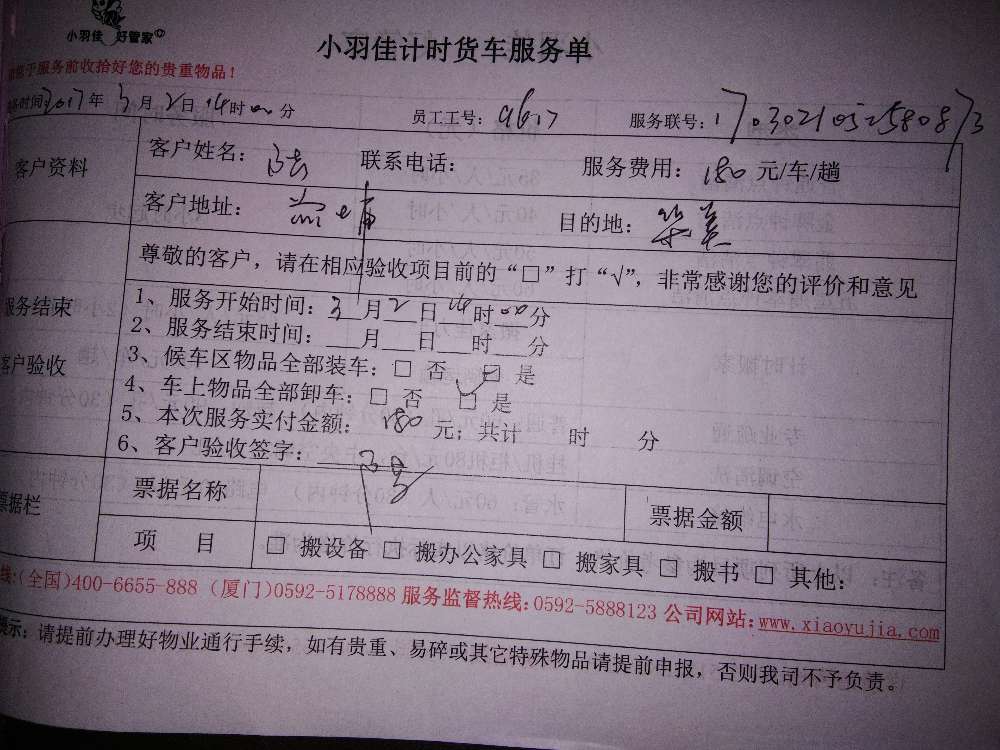 小羽佳 好管家
小羽佳计时货车服务单
于服务前收拾好您的贵重物品！
时间2017年3月2日14时00分 员工工号：9617 服务联号：1703021052580873
客户资料
客户姓名： 联系电话： 服务费用：180元/车/趟
客户地址： 目的地：
尊敬的客户，请在相应验收项目前的“□”打“√”，非常感谢您的评价和意见
服务结束
客户验收
1、服务开始时间：3月2日14时00分
2、服务结束时间：___月___日___时___分
3、候车区物品全部装车：□ 否 □ 是
4、车上物品全部卸车：□ 否 □ 是
5、本次服务实付金额：180元；共计 时 分
6、客户验收签字：
票据栏
票据名称 票据金额
项 目 □ 搬设备 □ 搬办公家具 □ 搬家具 □ 搬书 □ 其他：
线：(全国)400-6655-888（厦门）0592-5178888 服务监督热线：0592-5888123 公司网站：www.xiaoyujia.com
提示：请提前办理好物业通行手续，如有贵重、易碎或其它特殊物品请提前申报，否则我司不予负责。